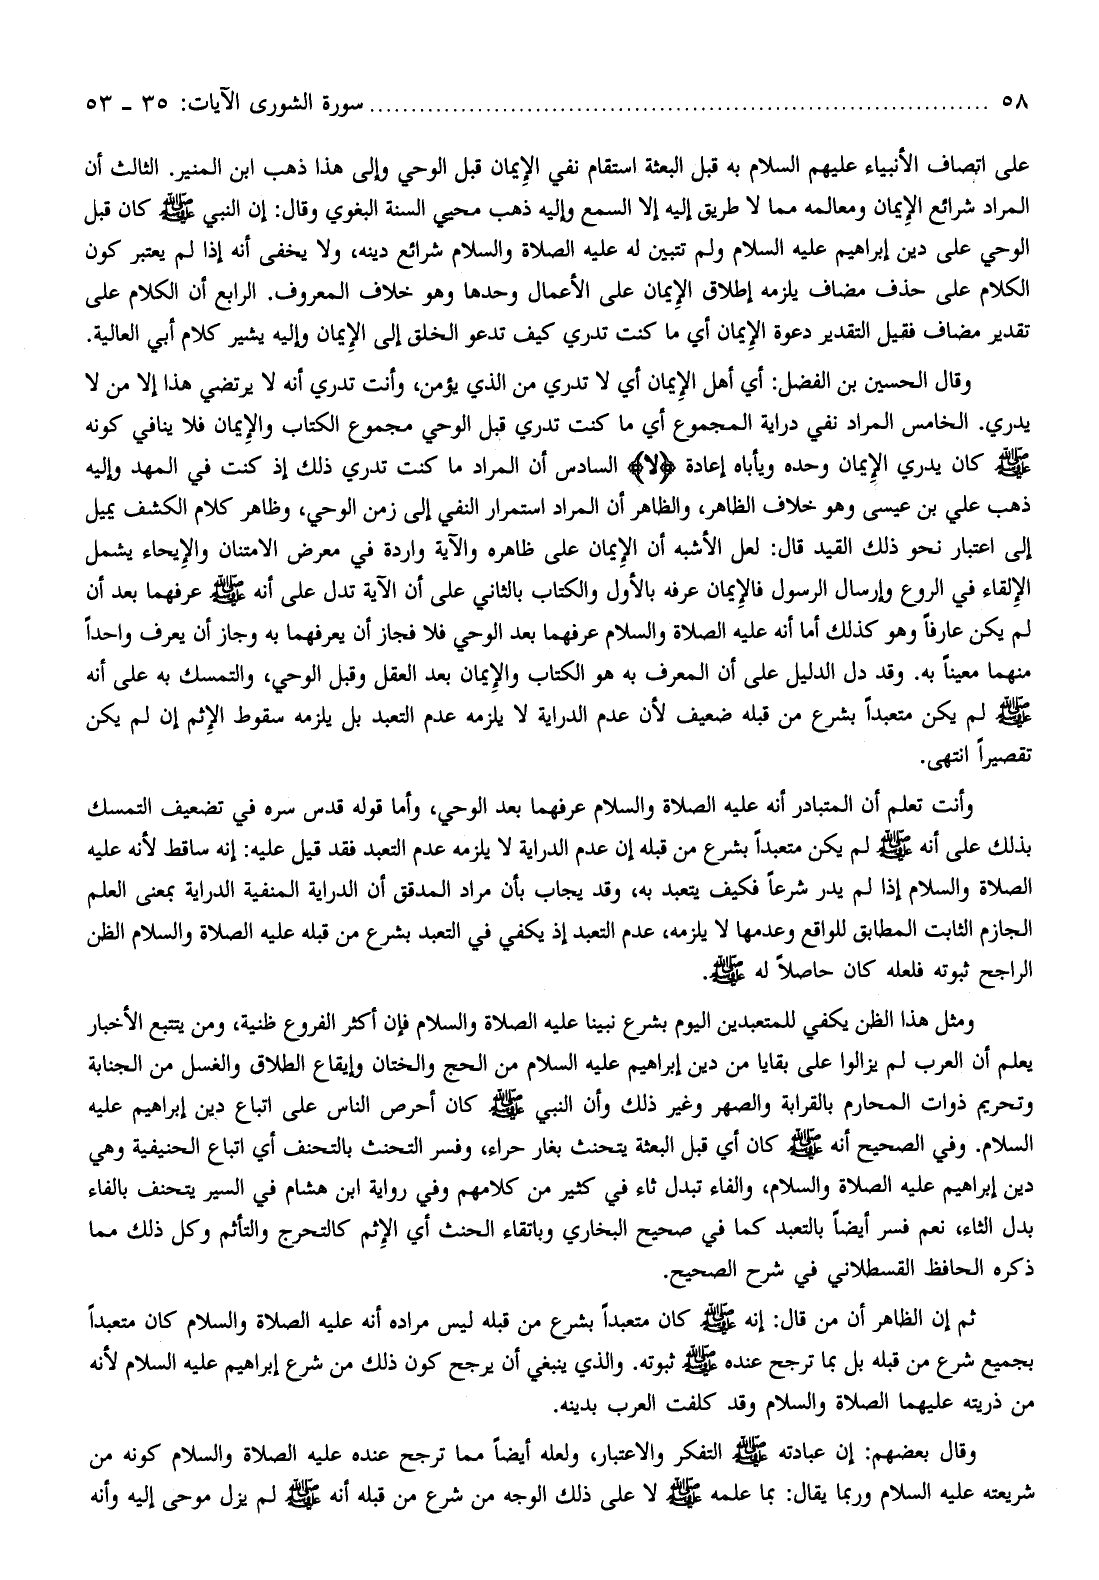 ٥٨ ........................................................................... سورة الشورى الآيات: ٣٥ ـ ٥٣
على اتصاف الأنبياء عليهم السلام به قبل البعثة استقام نفي الإيمان قبل الوحي وإلى هذا ذهب ابن المنير. الثالث أن
المراد شرائع الإيمان ومعالمه مما لا طريق إليه إلا السمع وإليه ذهب محيي السنة البغوي وقال: إن النبي ﷺ كان قبل
الوحي على دين إبراهيم عليه السلام ولم تتبين له عليه الصلاة والسلام شرائع دينه، ولا يخفى أنه إذا لم يعتبر كون
الكلام على حذف مضاف يلزمه إطلاق الإيمان على الأعمال وحدها وهو خلاف المعروف. الرابع أن الكلام على
تقدير مضاف فقيل التقدير دعوة الإيمان أي ما كنت تدري كيف تدعو الخلق إلى الإيمان وإليه يشير كلام أبي العالية.
وقال الحسين بن الفضل: أي أهل الإيمان أي لا تدري من الذي يؤمن، وأنت تدري أنه لا يرتضي هذا إلا من لا
يدري. الخامس المراد نفي دراية المجموع أي ما كنت تدري قبل الوحي مجموع الكتاب والإيمان فلا ينافي كونه
ﷺ كان يدري الإيمان وحده ويأباه إعادة ﴿لا﴾ السادس أن المراد ما كنت تدري ذلك إذ كنت في المهد وإليه
ذهب علي بن عيسى وهو خلاف الظاهر، والظاهر أن المراد استمرار النفي إلى زمن الوحي، وظاهر كلام الكشف يميل
إلى اعتبار نحو ذلك القيد قال: لعل الأشبه أن الإيمان على ظاهره والآية واردة في معرض الامتنان والإيحاء يشمل
الإلقاء في الروع وإرسال الرسول فالإيمان عرفه بالأول والكتاب بالثاني على أن الآية تدل على أنه ﷺ عرفهما بعد أن
لم يكن عارفاً وهو كذلك أما أنه عليه الصلاة والسلام عرفهما بعد الوحي فلا فجاز أن يعرفهما به وجاز أن يعرف واحداً
منهما معيناً به. وقد دل الدليل على أن المعرف به هو الكتاب والإيمان بعد العقل وقبل الوحي، والتمسك به على أنه
ﷺ لم يكن متعبداً بشرع من قبله ضعيف لأن عدم الدراية لا يلزمه عدم التعبد بل يلزمه سقوط الإثم إن لم يكن
تقصيراً انتهى.
وأنت تعلم أن المتبادر أنه عليه الصلاة والسلام عرفهما بعد الوحي، وأما قوله قدس سره في تضعيف التمسك
بذلك على أنه ﷺ لم يكن متعبداً بشرع من قبله إن عدم الدراية لا يلزمه عدم التعبد فقد قيل عليه: إنه ساقط لأنه عليه
الصلاة والسلام إذا لم يدر شرعاً فكيف يتعبد به، وقد يجاب بأن مراد المدقق أن الدراية المنفية الدراية بمعنى العلم
الجازم الثابت المطابق للواقع وعدمها لا يلزمه، عدم التعبد إذ يكفي في التعبد بشرع من قبله عليه الصلاة والسلام الظن
الراجح ثبوته فلعله كان حاصلاً له ﷺ.
ومثل هذا الظن يكفي للمتعبدين اليوم بشرع نبينا عليه الصلاة والسلام فإن أكثر الفروع ظنية، ومن يتتبع الأخبار
يعلم أن العرب لم يزالوا على بقايا من دين إبراهيم عليه السلام من الحج والختان وإيقاع الطلاق والغسل من الجنابة
وتحريم ذوات المحارم بالقرابة والصهر وغير ذلك وأن النبي ﷺ كان أحرص الناس على اتباع دين إبراهيم عليه
السلام. وفي الصحيح أنه ﷺ كان أي قبل البعثة يتحنث بغار حراء، وفسر التحنث بالتحنف أي اتباع الحنيفية وهي
دين إبراهيم عليه الصلاة والسلام، والفاء تبدل ثاء في كثير من كلامهم وفي رواية ابن هشام في السير يتحنف بالفاء
بدل الثاء، نعم فسر أيضاً بالتعبد كما في صحيح البخاري وباتقاء الحنث أي الإثم كالتحرج والتأثم وكل ذلك مما
ذكره الحافظ القسطلاني في شرح الصحيح.
ثم إن الظاهر أن من قال: إنه ﷺ كان متعبداً بشرع من قبله ليس مراده أنه عليه الصلاة والسلام كان متعبداً
بجميع شرع من قبله بل بما ترجح عنده ﷺ ثبوته. والذي ينبغي أن يرجح كون ذلك من شرع إبراهيم عليه السلام لأنه
من ذريته عليهما الصلاة والسلام وقد كلفت العرب بدينه.
وقال بعضهم: إن عبادته ﷺ التفكر والاعتبار، ولعله أيضاً مما ترجح عنده عليه الصلاة والسلام كونه من
شريعته عليه السلام وربما يقال: بما علمه ﷺ لا على ذلك الوجه من شرع من قبله أنه ﷺ لم يزل موحى إليه وأنه